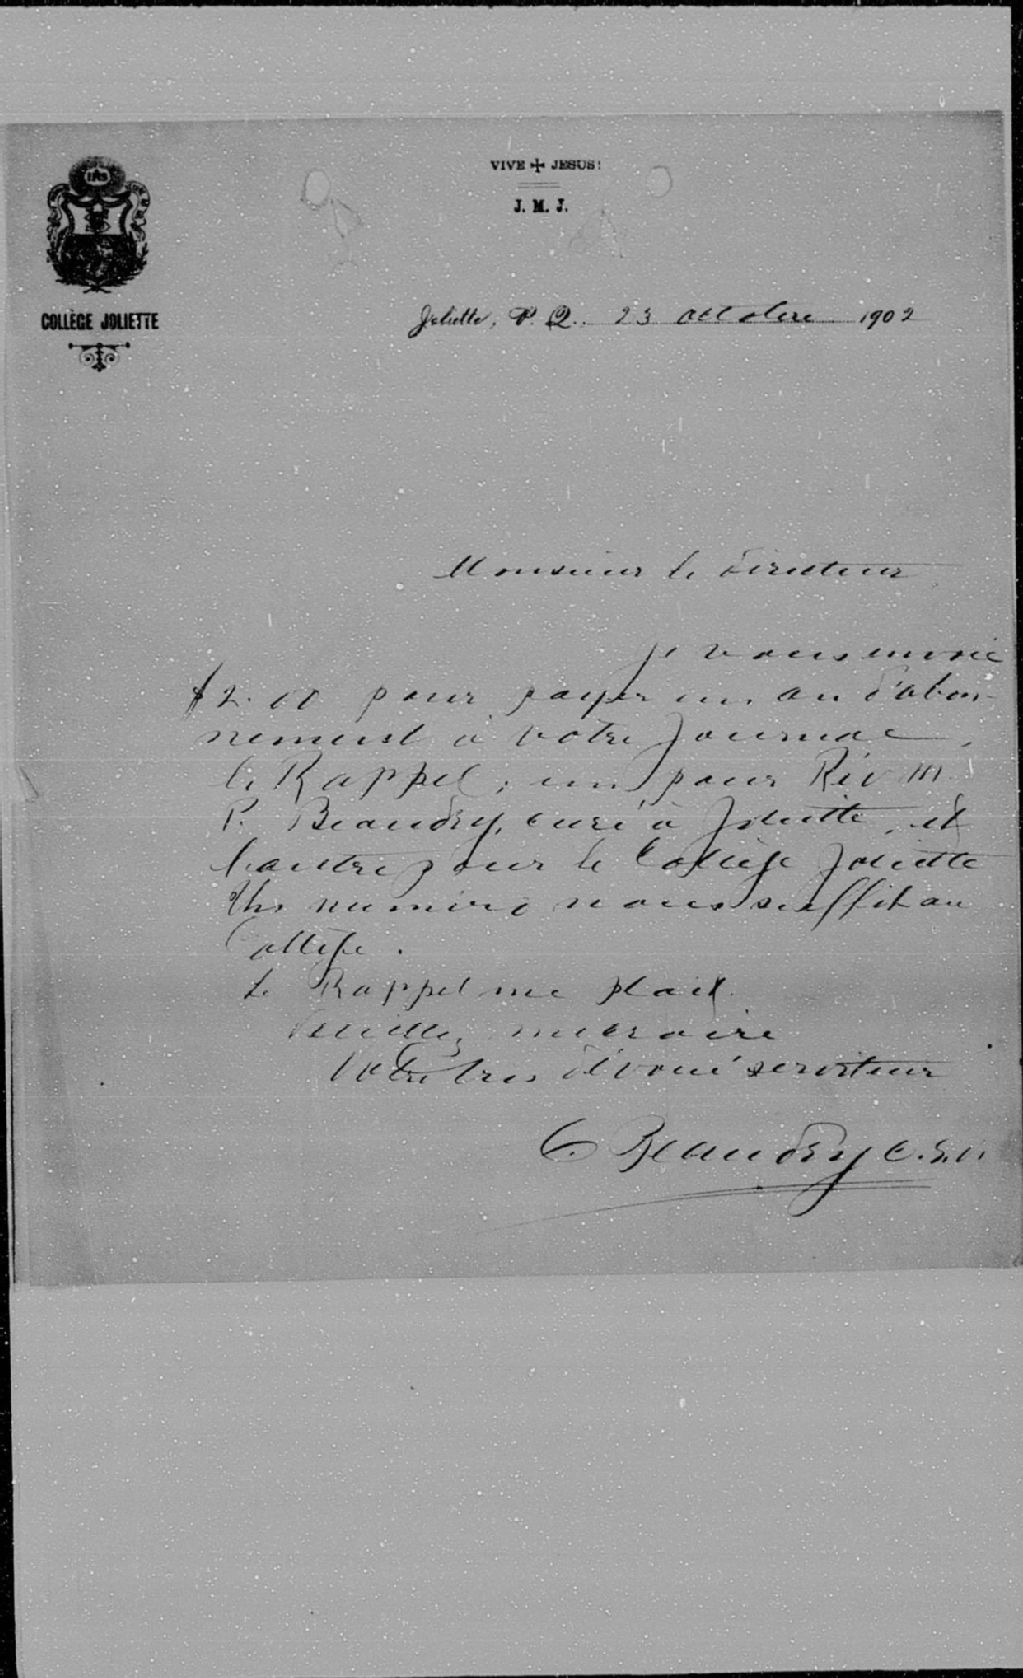 IHS
VIVE ✠ JESUS!
J. M. J.
COLLÈGE JOLIETTE
Joliette, P. Q. 23 octobre 1902
Monsieur le directeur
je vous envoie
$2.00 pour payer un an d'abon-
nement à votre journal,
le Rappel; un pour Rév M.
P. Beaudry, curé à Joliette, et
l'autre pour le Collège Joliette
Un numéro nous suffit au
Collège.
Le Rappel me plait.
Veuillez me croire
Votre très dévoué serviteur
C. Beaudry c.s.v.